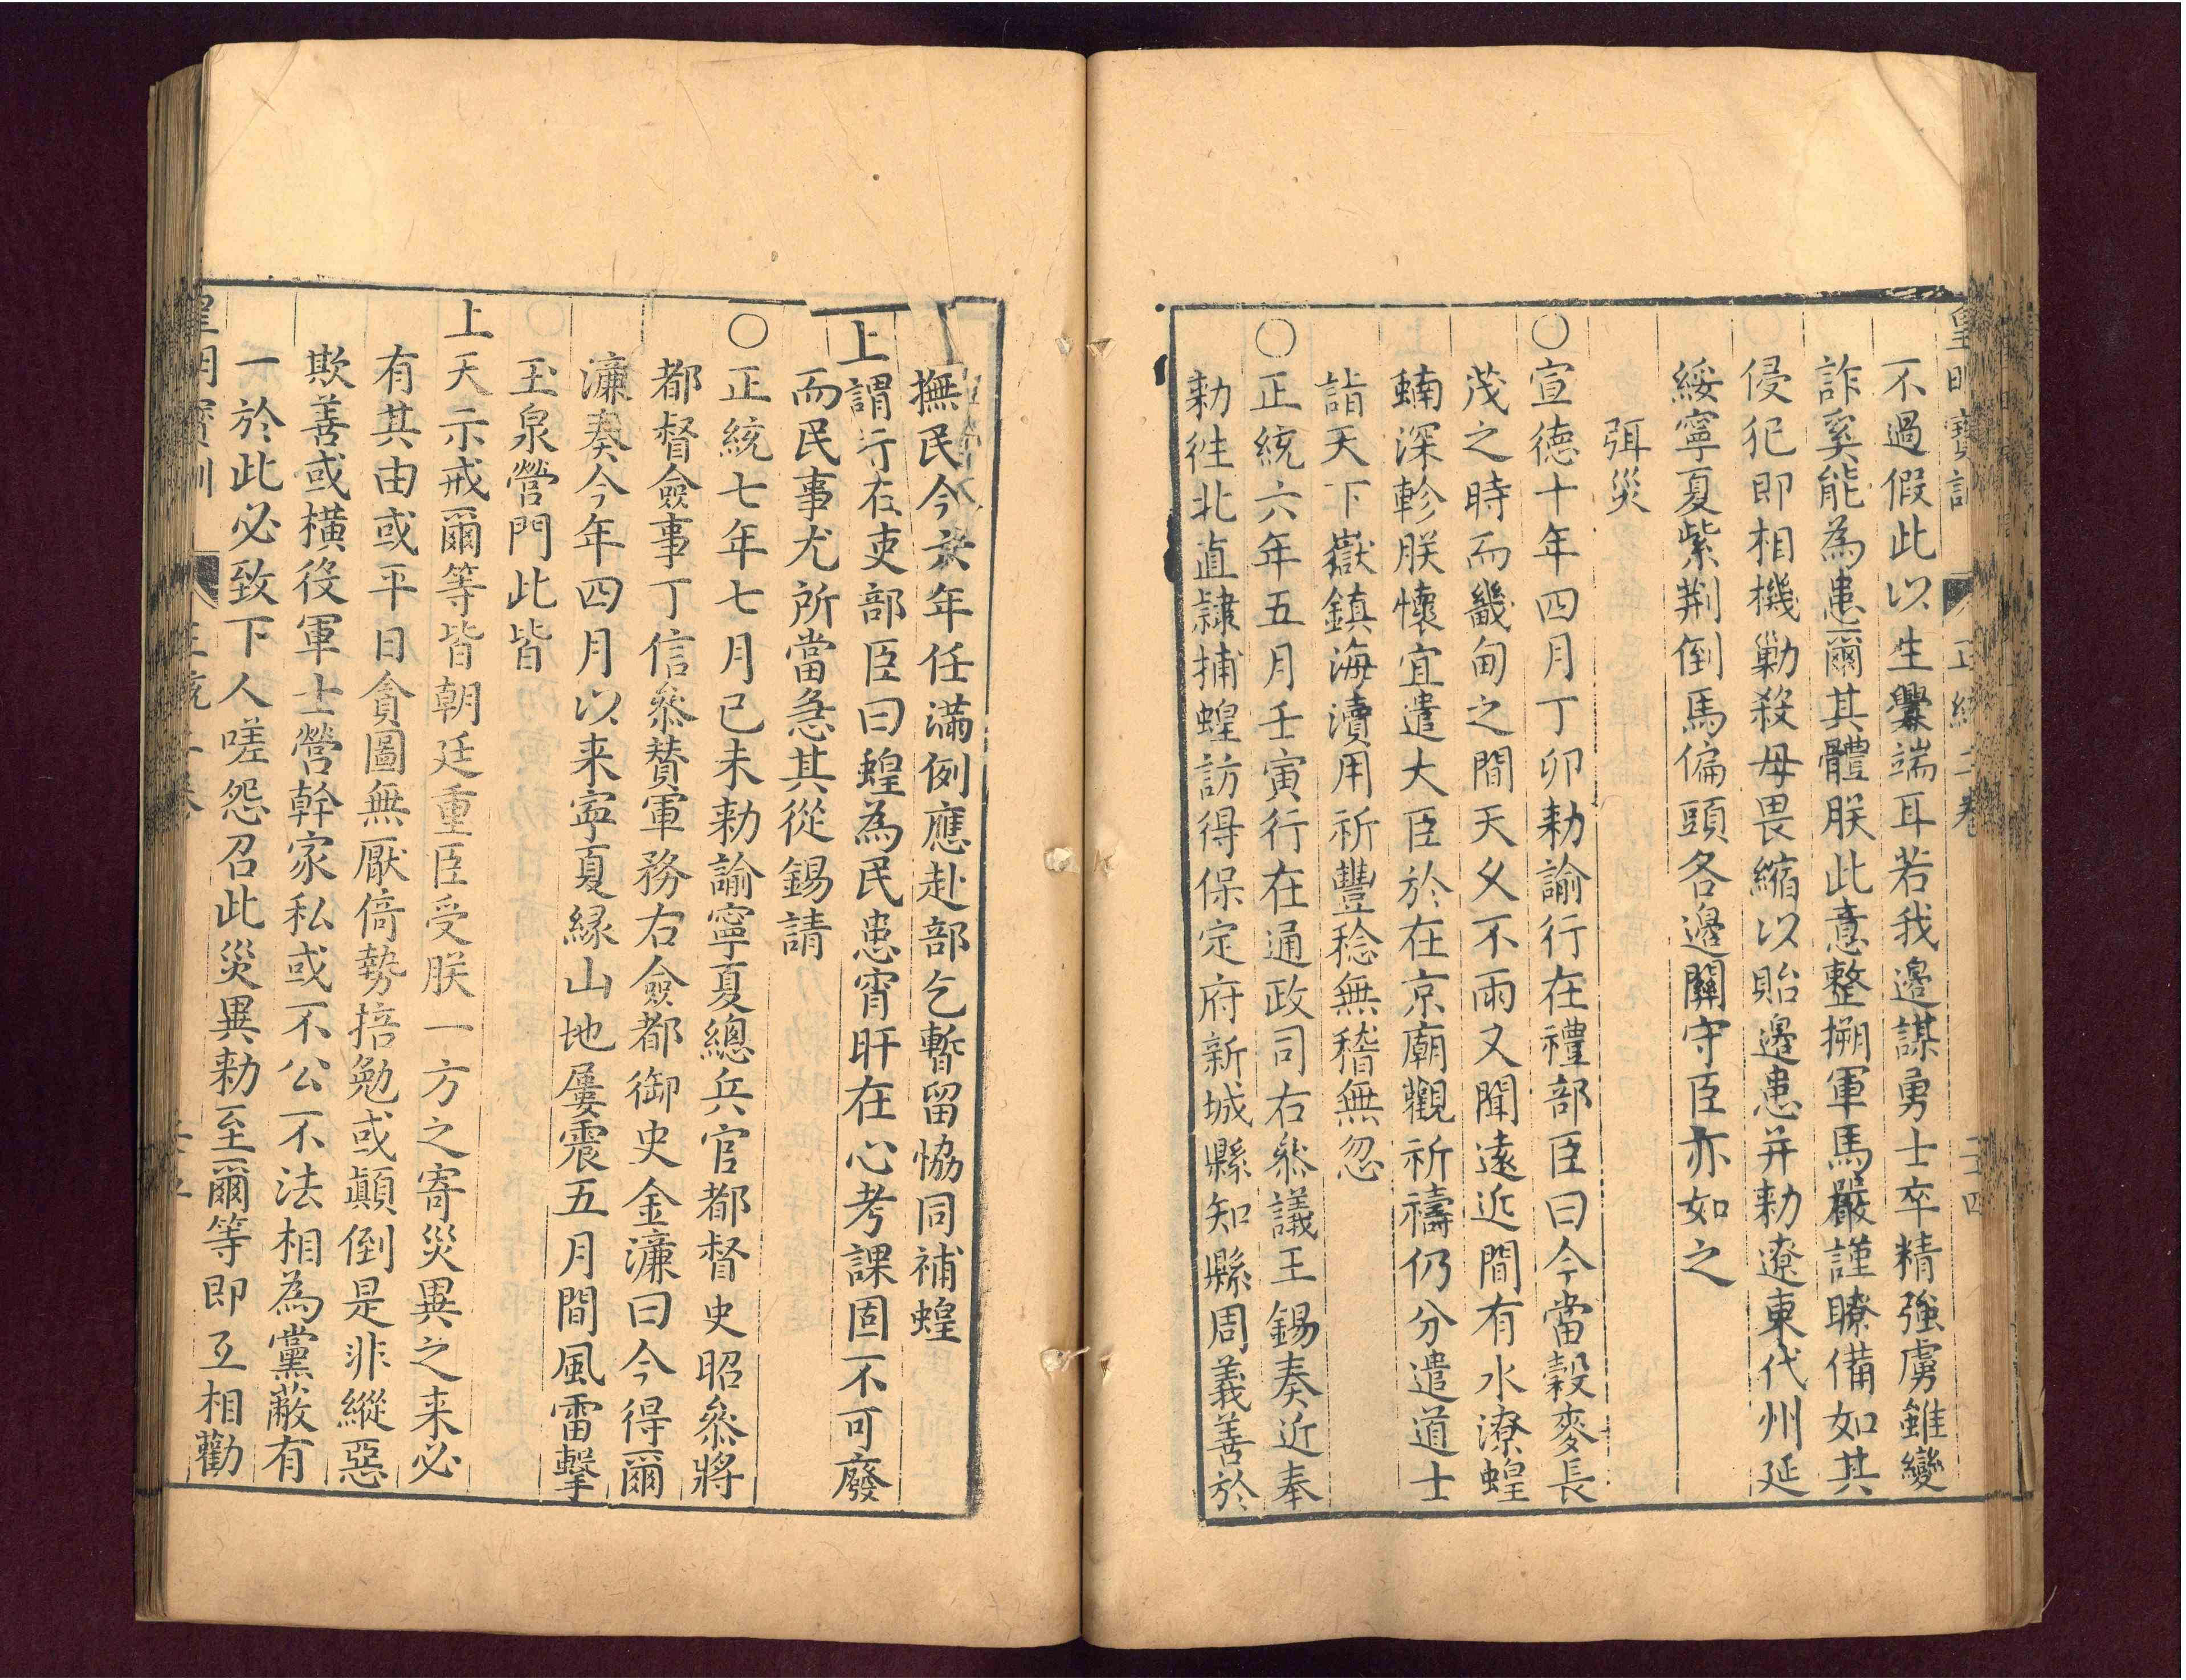 皇明寶訓 正統二卷 二十四
不過假此以生釁端耳若我邊謀勇士卒精強虜雖變
詐奚能為患爾其體朕此意整搠軍馬嚴謹瞭備如其
侵犯即相機勦殺毋畏縮以貽邊患并勑遼東代州延
綏寧夏紫荆倒馬偏頭各邊關守臣亦如之
弭災
〇宣德十年四月丁卯勑諭行在禮部臣曰今當穀麥長
茂之時而畿甸之間天乆不雨又聞遠近間有水潦蝗
蝻深軫朕懷宜遣大臣於在京廟觀祈禱仍分遣道士
詣天下嶽鎮海瀆用祈豐稔無稽無忽
〇正統六年五月壬寅行在通政司右叅議王錫奏近奉
勑徃北直隷捕蝗訪得保定府新城縣知縣周義善於
撫民今六年任滿例應赴部乞暫留恊同補蝗
上謂行在吏部臣曰蝗為民患宵旰在心考課固不可廢
而民事尤所當急其從錫請
〇正統七年七月己未勑諭寧夏總兵官都督史昭叅將
都督僉事丁信叅賛軍務右僉都御史金濂曰今得爾
濂奏今年四月以来寧夏緣山地屢震五月間風雷擊
玉泉營門此皆
上天示戒爾等皆朝廷重臣受朕一方之寄災異之来必
有其由或平日貪圖無厭倚勢掊尅或顛倒是非縱惡
欺善或橫役軍士營幹家私或不公不法相為黨蔽有
一於此必致下人嗟怨召此災異勑至爾等即互相勸
皇明寶訓